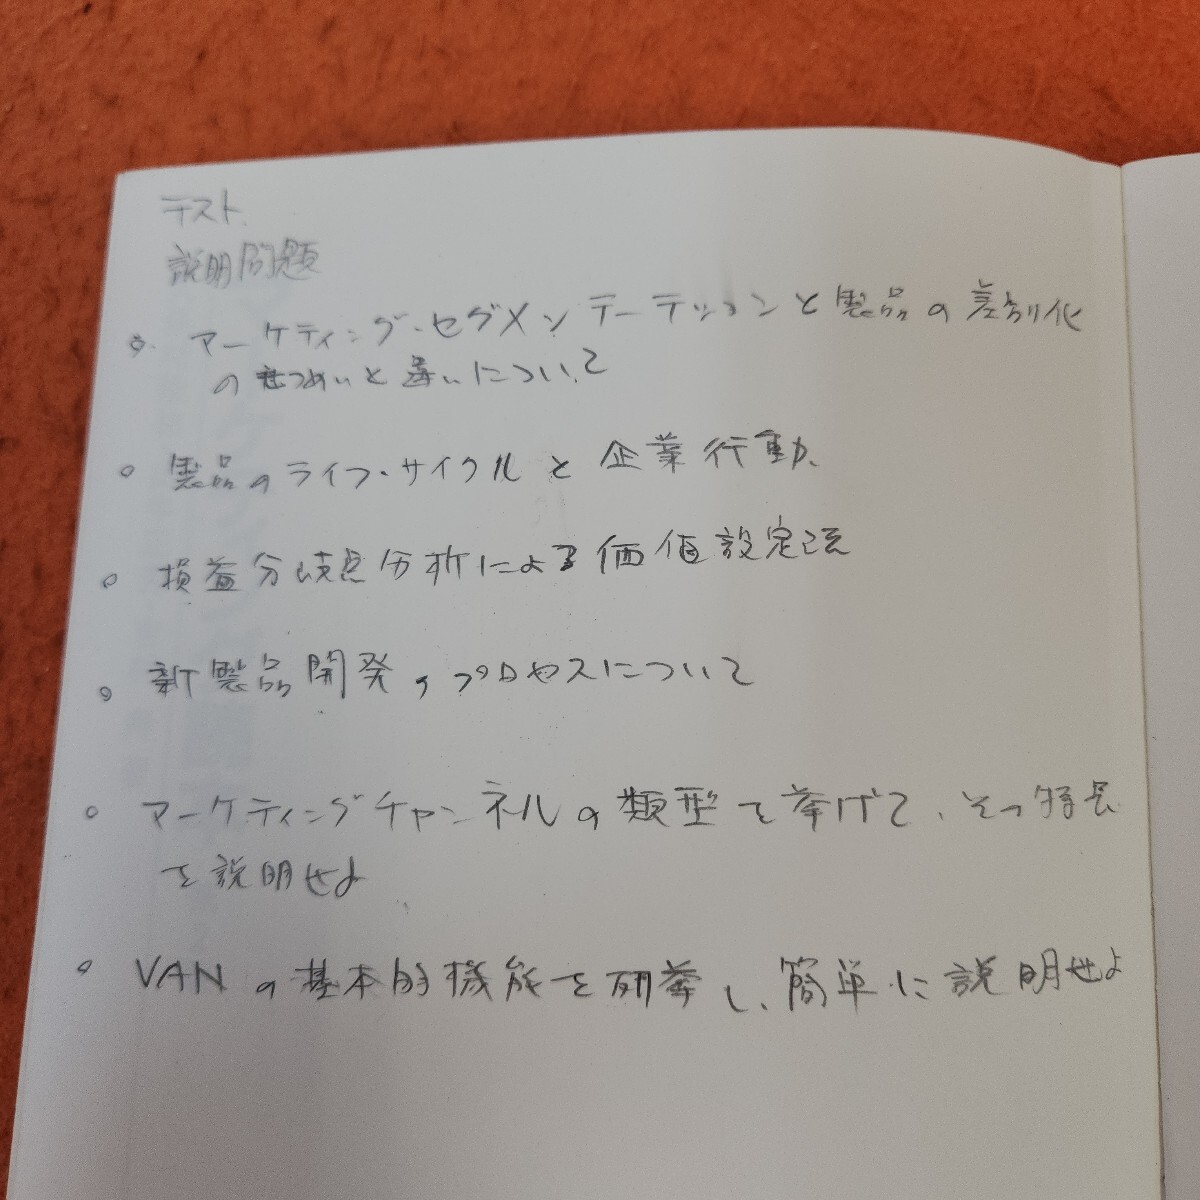 テスト
説明問題
○ マーケティング・セグメンテーテッョンと製品の差別化
のせつめいと違いについて
○ 製品のライフ・サイクルと企業行動、
○ 損益分岐点分析による価値設定法
○ 新製品開発のプロセスについて
○ マーケティングチャンネルの類型を挙げて、その特長
を説明せよ
○ VANの基本的機能を列挙し、簡単に説明せよ